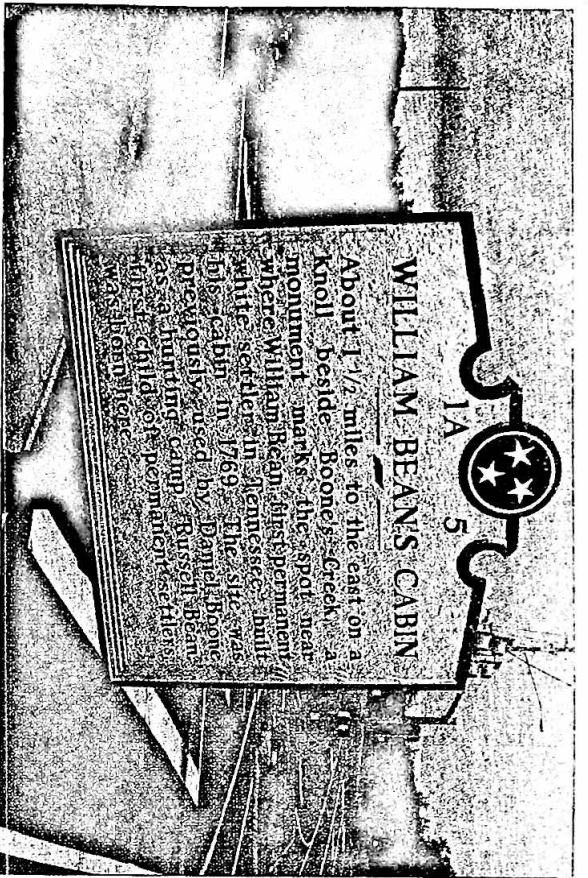 1A 5
WILLIAM BEAN'S CABIN
About 1 1/2 miles to the east on a
knoll beside Boone's Creek, a
monument marks the spot near
where William Bean, first permanent
white settler in Tennessee, built
his cabin in 1769. The site was
previously used by Daniel Boone
as a hunting camp. Russell Bean,
first child of permanent settlers
was born here.